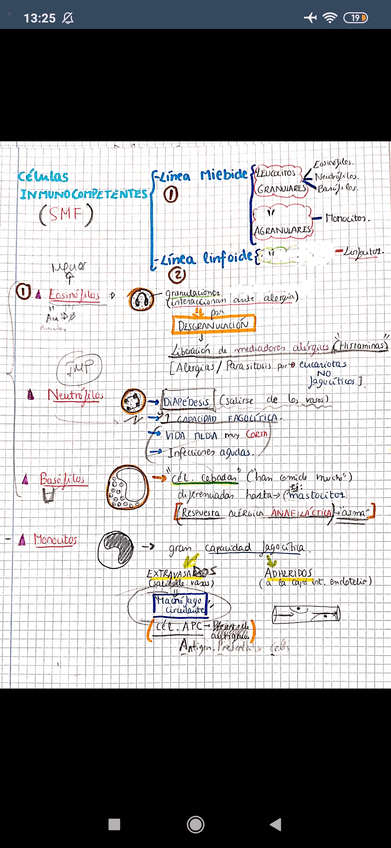 13:25
19
Células
INMUNOCOMPETENTES
(SMF)
-Línea Mieloide
①
LEUCOCITOS
GRANULARES
Eosinófilos.
Neutrófilos
Basófilos.
"
AGRANULARES
Monocitos.
-Línea linfoide
②
"
Linfocitos.
① Eosinófilos
granulaciones
(interaccionan ante alergia)
por
DESGRANULACIÓN
Liberación de mediadores alérgicos ("Histaminas")
[Alergias / Parasitosis por eucariotas
NO
fagocíticas].
IMP
Neutrófilos
DIAPÉDESIS (salirse de los vasos)
↑ CAPACIDAD FAGOCÍTICA.
VIDA MEDIA muy CORTA
Infecciones agudas.
Basófilos
"cél. cebadas" ("han comido mucho")
diferenciadas hasta → (mastocitos
[RESPUESTA ALÉRGICA ANAFILÁCTICA) → asma
- Monocitos
→ gran capacidad fagocítica.
EXTRAVASADOS
ADHERIDOS
(a la capa int. endotelio)
Macrófago
circulante
(CÉL. APC →
Antigen Presenting Cells